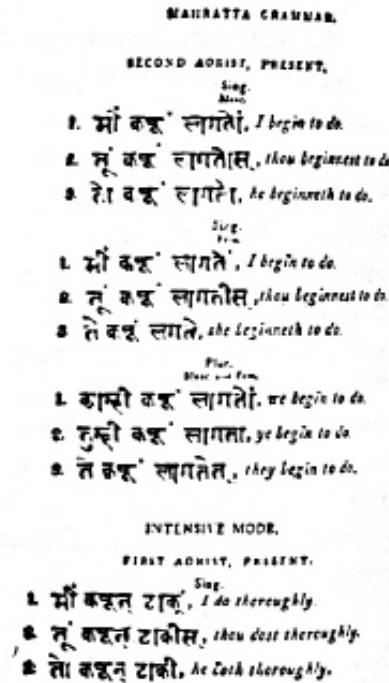 MAHRATTA GRAMMAR.
SECOND AORIST, PRESENT.
Sing.
Masc.
1. मीं कचूं लागतों, I begin to do.
2. तूं कचूं लागतोस, thou beginnest to do
3. तो कचूं लागतो, he beginneth to do.
Sing.
Fem.
1. मीं कचूं लागतें, I begin to do.
2. तूं कचूं लागतीस, thou beginnest to do.
3 ते कचूं लागते, she beginneth to do.
Plur.
Masc and Fem.
1. आम्ही कचूं लागतों, we begin to do.
2. तुम्ही कचूं लागता, ye begin to do.
3. ते कचूं लागतेत, they begin to do.
INTENSIVE MODE.
FIRST AORIST, PRESENT.
Sing.
1. मीं कचून् टाकूं, I do thoroughly.
2. तूं कचून् टाकीस, thou dost thoroughly.
3. तो कचून् टाकी, he doth thoroughly.